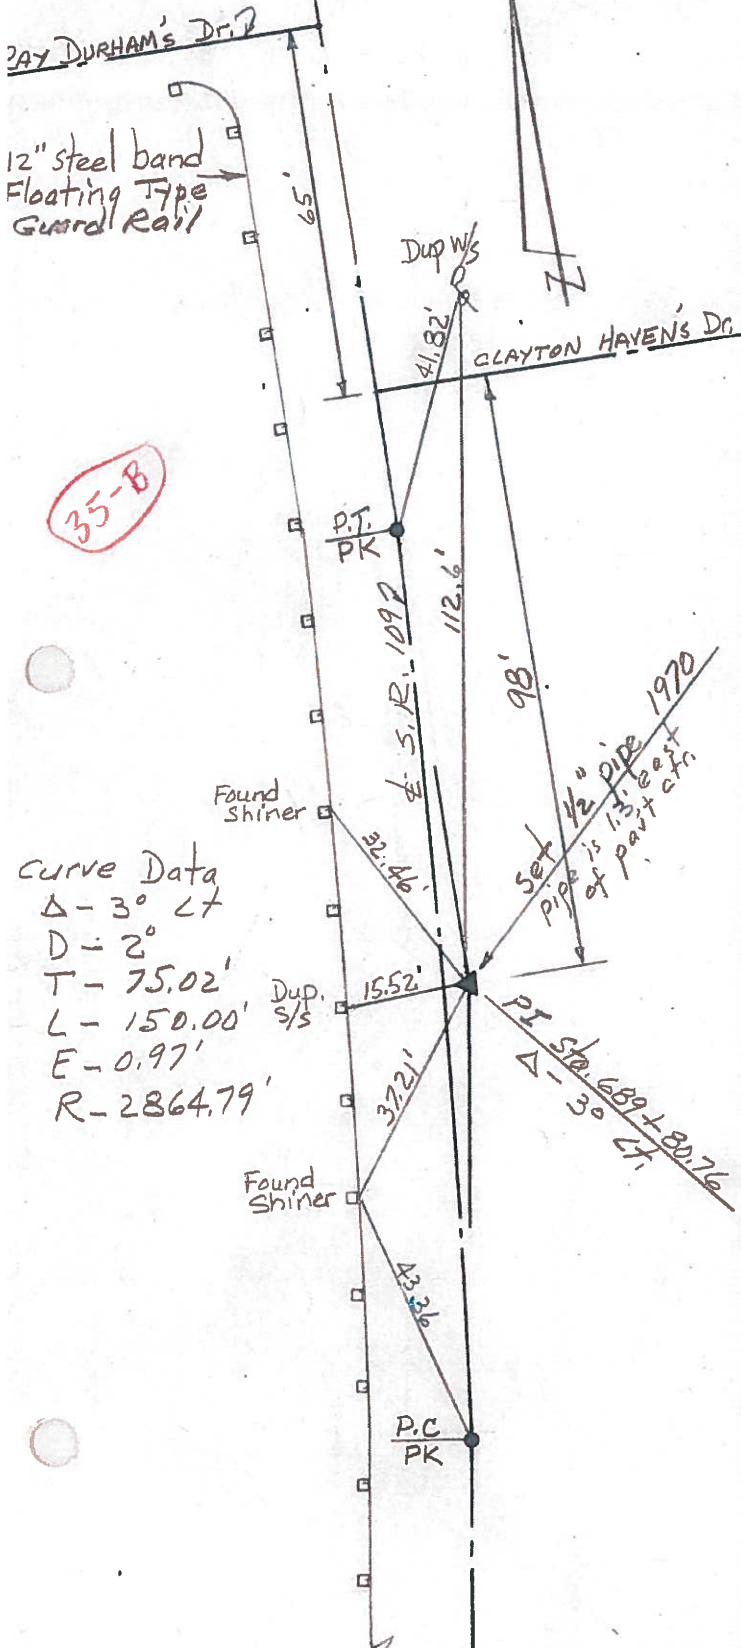 RAY DURHAM'S Dr.
12" steel band
Floating Type
Guard Rail
65'
Z
Dup W/S
41.82'
CLAYTON HAVEN'S Dr.
35-B
P.T.
PK
S.R. 109
112.6'
98'
Set 1/2" pipe 1970
pipe is 1.3' east
of pav't ctr.
Found
Shiner
32.46'
Curve Data
Δ - 3° Lt
D - 2°
T - 75.02'
L - 150.00'
E - 0.97'
R - 2864.79'
Dup.
S/S
15.52'
PI Sta. 689+80.76
Δ - 3° Lt.
37.21'
Found
Shiner
43.36
P.C
PK